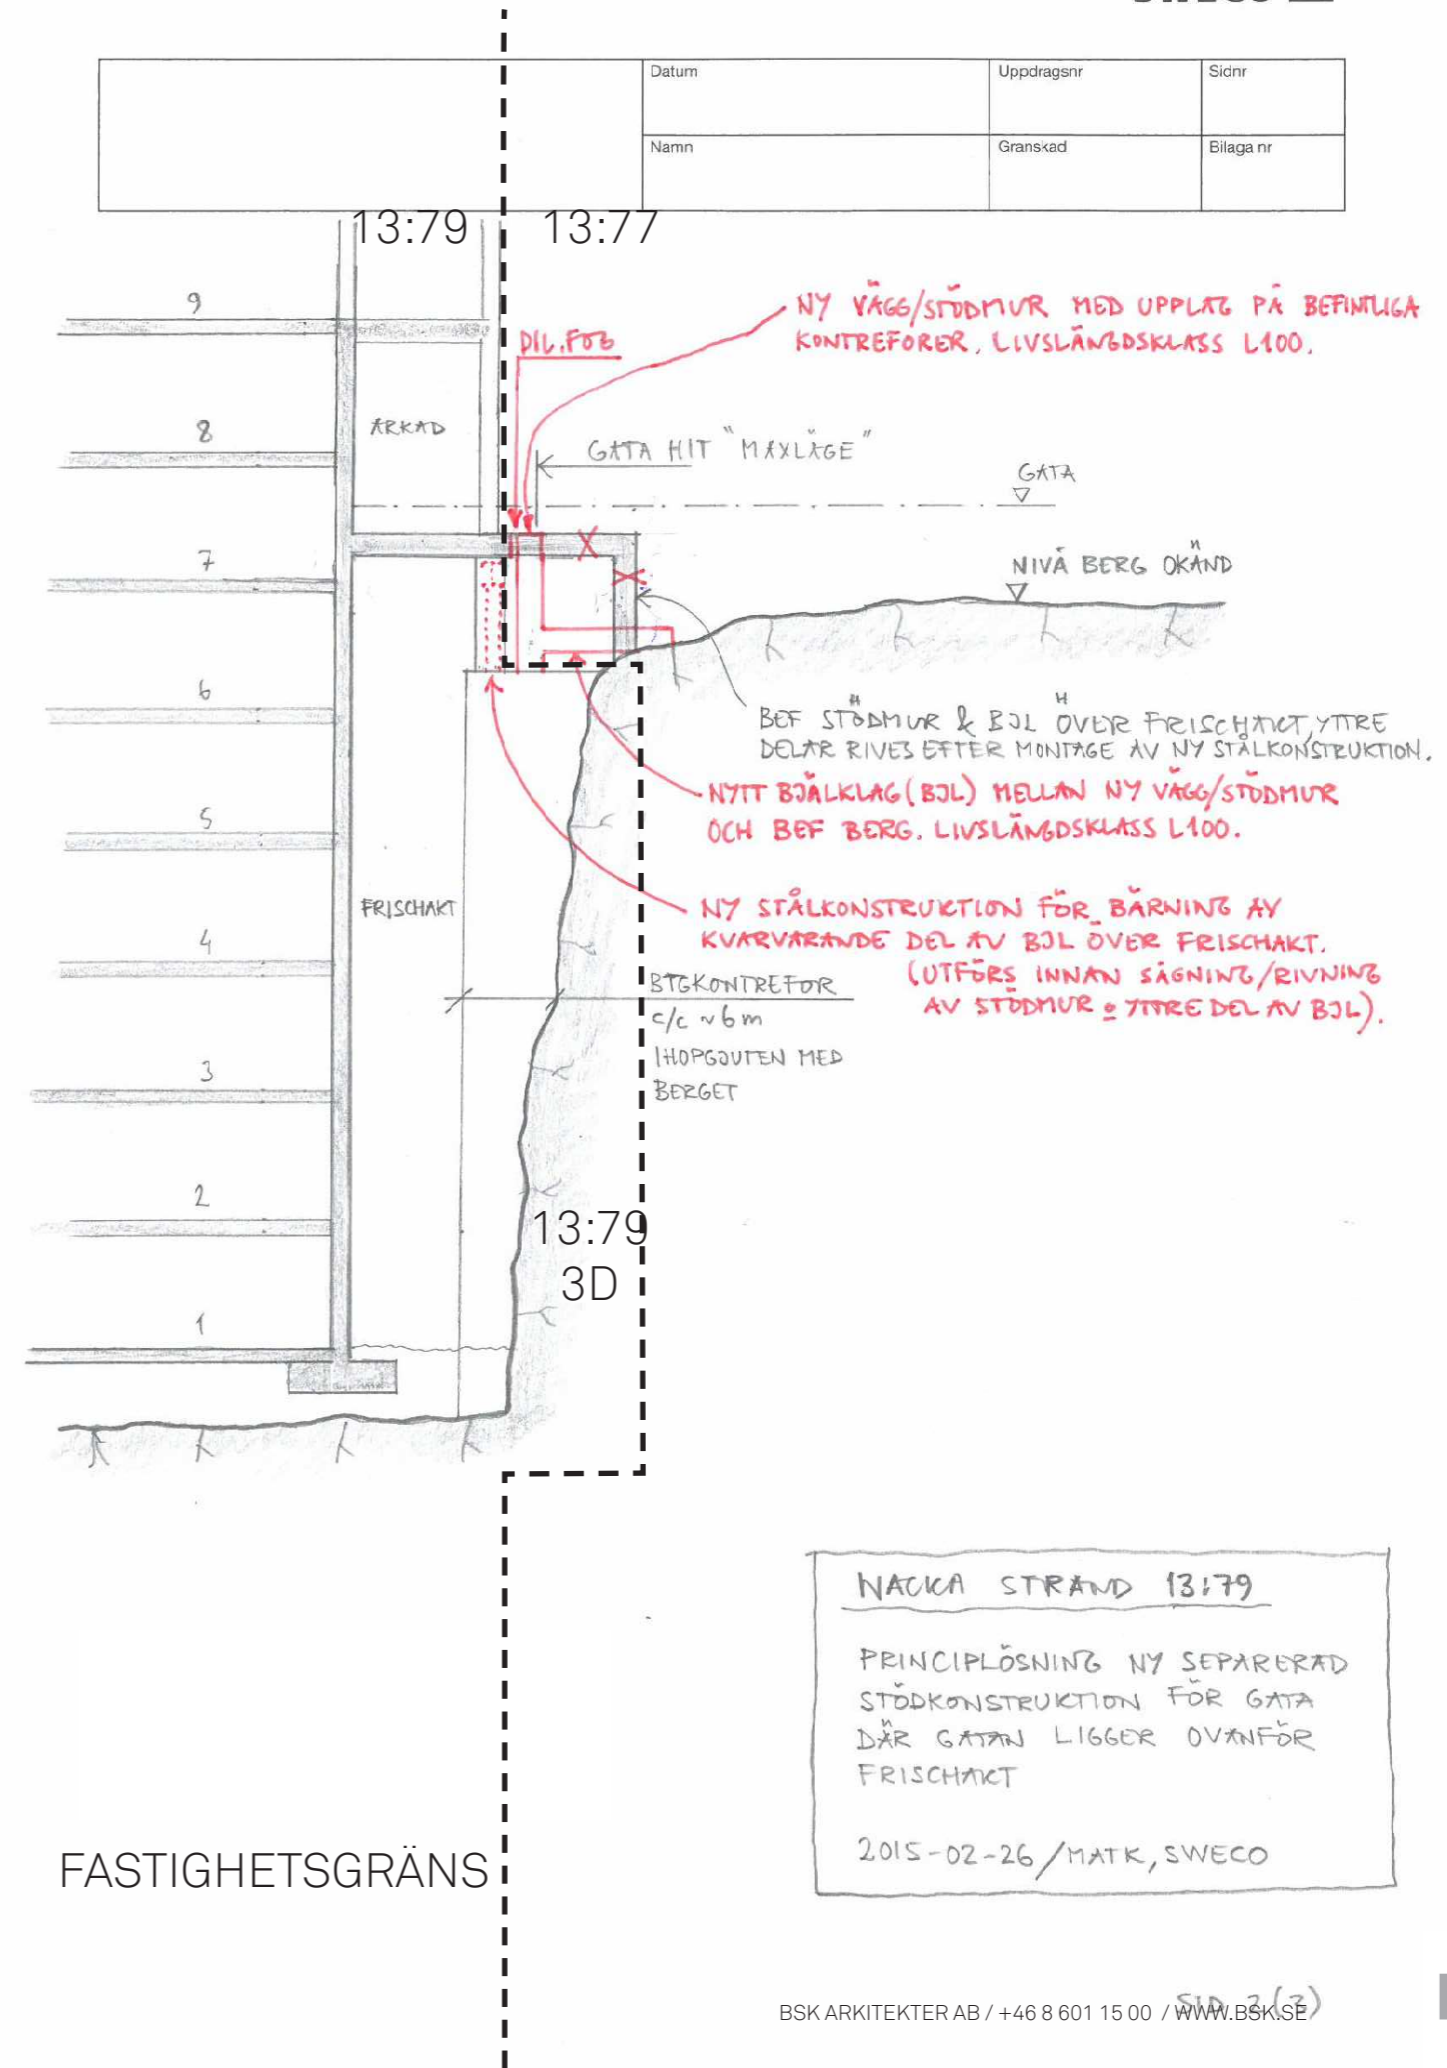 Datum
Uppdragsnr
Sidnr
Namn
Granskad
Bilaga nr
13:79
13:77
NY VÄGG/STÖDMUR MED UPPLAG PÅ BEFINTLIGA
KONTREFORER, LIVSLÄNGDSKLASS L100.
DIL.FOG
9
8
7
6
5
4
3
2
1
ARKAD
GATA HIT "MAXLÄGE"
GATA
NIVÅ BERG OKÄND
BEF STÖDMUR & BJL ÖVER FRISCHAKT, YTTRE
DELAR RIVES EFTER MONTAGE AV NY STÅLKONSTRUKTION.
NYTT BJÄLKLAG (BJL) MELLAN NY VÄGG/STÖDMUR
OCH BEF BERG. LIVSLÄNGDSKLASS L100.
FRISCHAKT
NY STÅLKONSTRUKTION FÖR BÄRNING AV
KVARVARANDE DEL AV BJL ÖVER FRISCHAKT.
(UTFÖRS INNAN SÅGNING/RIVNING
AV STÖDMUR o YTTRE DEL AV BJL).
BTGKONTREFOR
c/c ~6m
IHOPGJUTEN MED
BERGET
13:79
3D
NACKA STRAND 13:79
PRINCIPLÖSNING NY SEPARERAD
STÖDKONSTRUKTION FÖR GATA
DÄR GATAN LIGGER OVANFÖR
FRISCHAKT
2015-02-26 /MATK, SWECO
FASTIGHETSGRÄNS
BSK ARKITEKTER AB / +46 8 601 15 00 / WWW.BSK.SE
SID 2(2)